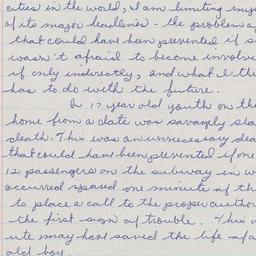 cities in the world, I am limiting mys
of its major headlines - the problem o
that could have been prevented if s
wasn't afraid to become involve
if only indirectly, and what I the
has to do with the future.
A 17 year old youth on the
home from a date was savagely sla
death. This was an unnecessary dea
that could have been prevented if one
12 passengers on the subway in w
occurred spared one minute of th
to place a call to the proper author
the first sign of trouble. This
ute may have saved the life of a
old boy.